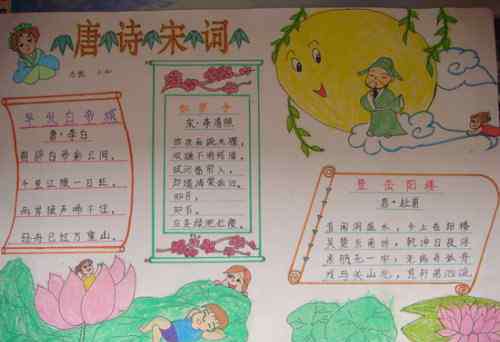 唐诗宋词
早发白帝城
唐·李白
朝辞白帝彩云间，
千里江陵一日还。
两岸猿声啼不住，
轻舟已过万重山。
如梦令
宋·李清照
昨夜雨疏风骤，
浓睡不消残酒。
试问卷帘人，
却道海棠依旧。
知否，
知否，
应是绿肥红瘦。
登岳阳楼
唐·杜甫
昔闻洞庭水，今上岳阳楼
吴楚东南坼，乾坤日夜浮
亲朋无一字，老病有孤舟
戎马关山北，凭轩涕泗流